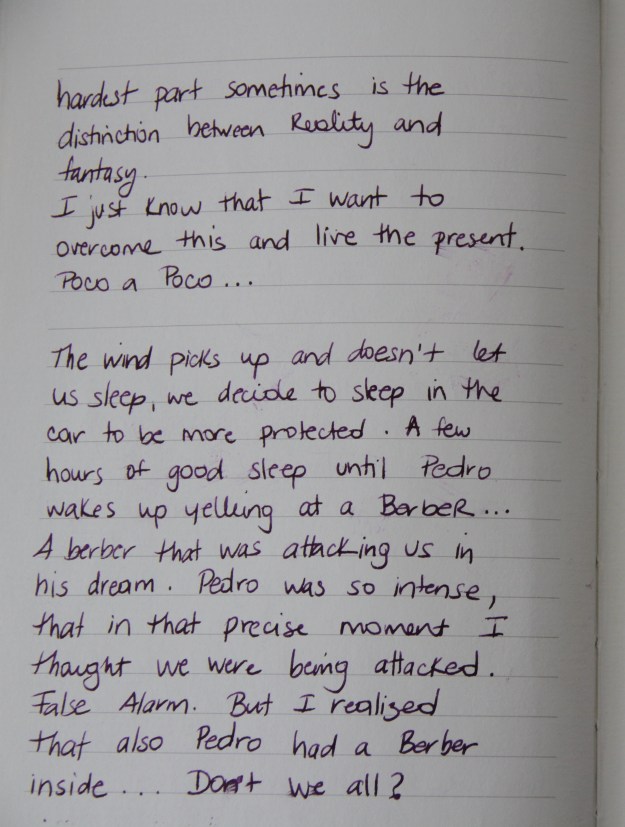 hardest part sometimes is the
distinction between Reality and
fantasy.
I just know that I want to
overcome this and live the present.
Poco a Poco...
The wind picks up and doesn't let
us sleep, we decide to sleep in the
car to be more protected. A few
hours of good sleep until Pedro
wakes up yelling at a BerbeR...
A berber that was attacking us in
his dream. Pedro was so intense,
that in that precise moment I
thought we were being attacked.
False Alarm. But I realized
that also Pedro had a Berber
inside... Don't we all?